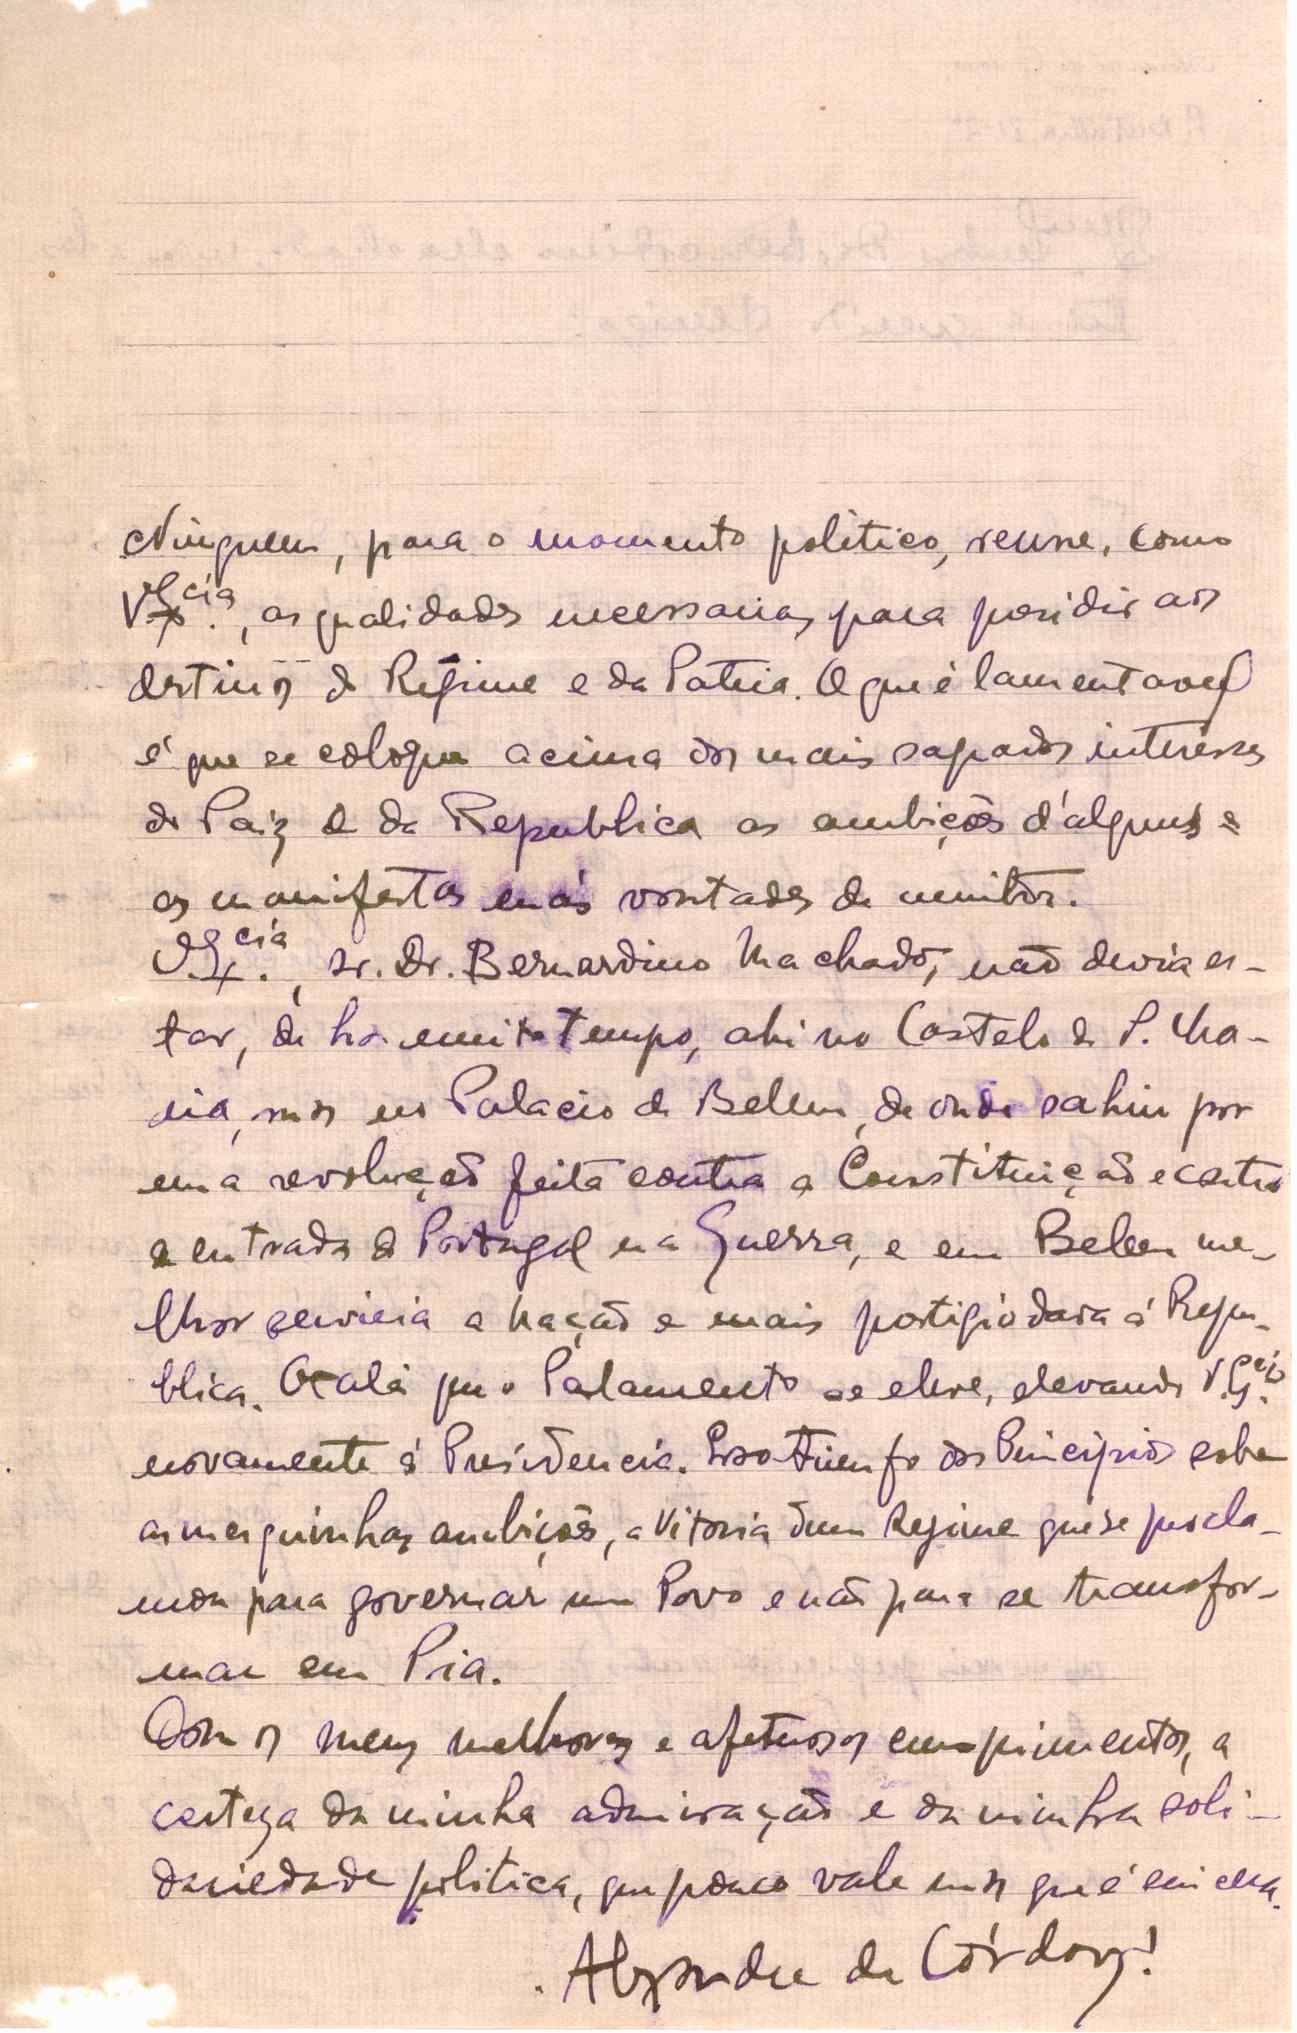 Ninguem, para o momento politico, reune, como
V. Ex.cia, as qualidades necessarias para presidir aos
destinos do Regime e da Patria. O que é lamentavel
é que se coloque acima dos mais sagrados interesses
do Paiz e da Republica as ambições d'alguns e
as manifestas más vontades de muitos.
V. Ex.cia, sr. Dr. Bernardino Machado, não devia es-
tar, de ha muito tempo, ahi no Castelo de S. Ma-
ria, mas no Palacio de Bellem, de onde sahiu por
uma revolução feita contra a Constituição e contra
a entrada de Portugal na Guerra, e em Belem me-
lhor serviria a Nação e mais prestigio dara á Repu-
blica. Oxalá que o Parlamento se eleve, elevando V. Ex.cia
novamente á Presidencia. É o triunfo dos Principios sobre
as mesquinhas ambições, a Vitoria dum Regime que se procla-
mou para governar um Povo e não para se transfor-
mar em Pia.
Com os meus melhores e afetuosos cumprimentos, a
certeza da minha admiração e da minha soli-
dariedade politica, que pouco vale mas que é sincera.
Alexandre de Córdova!